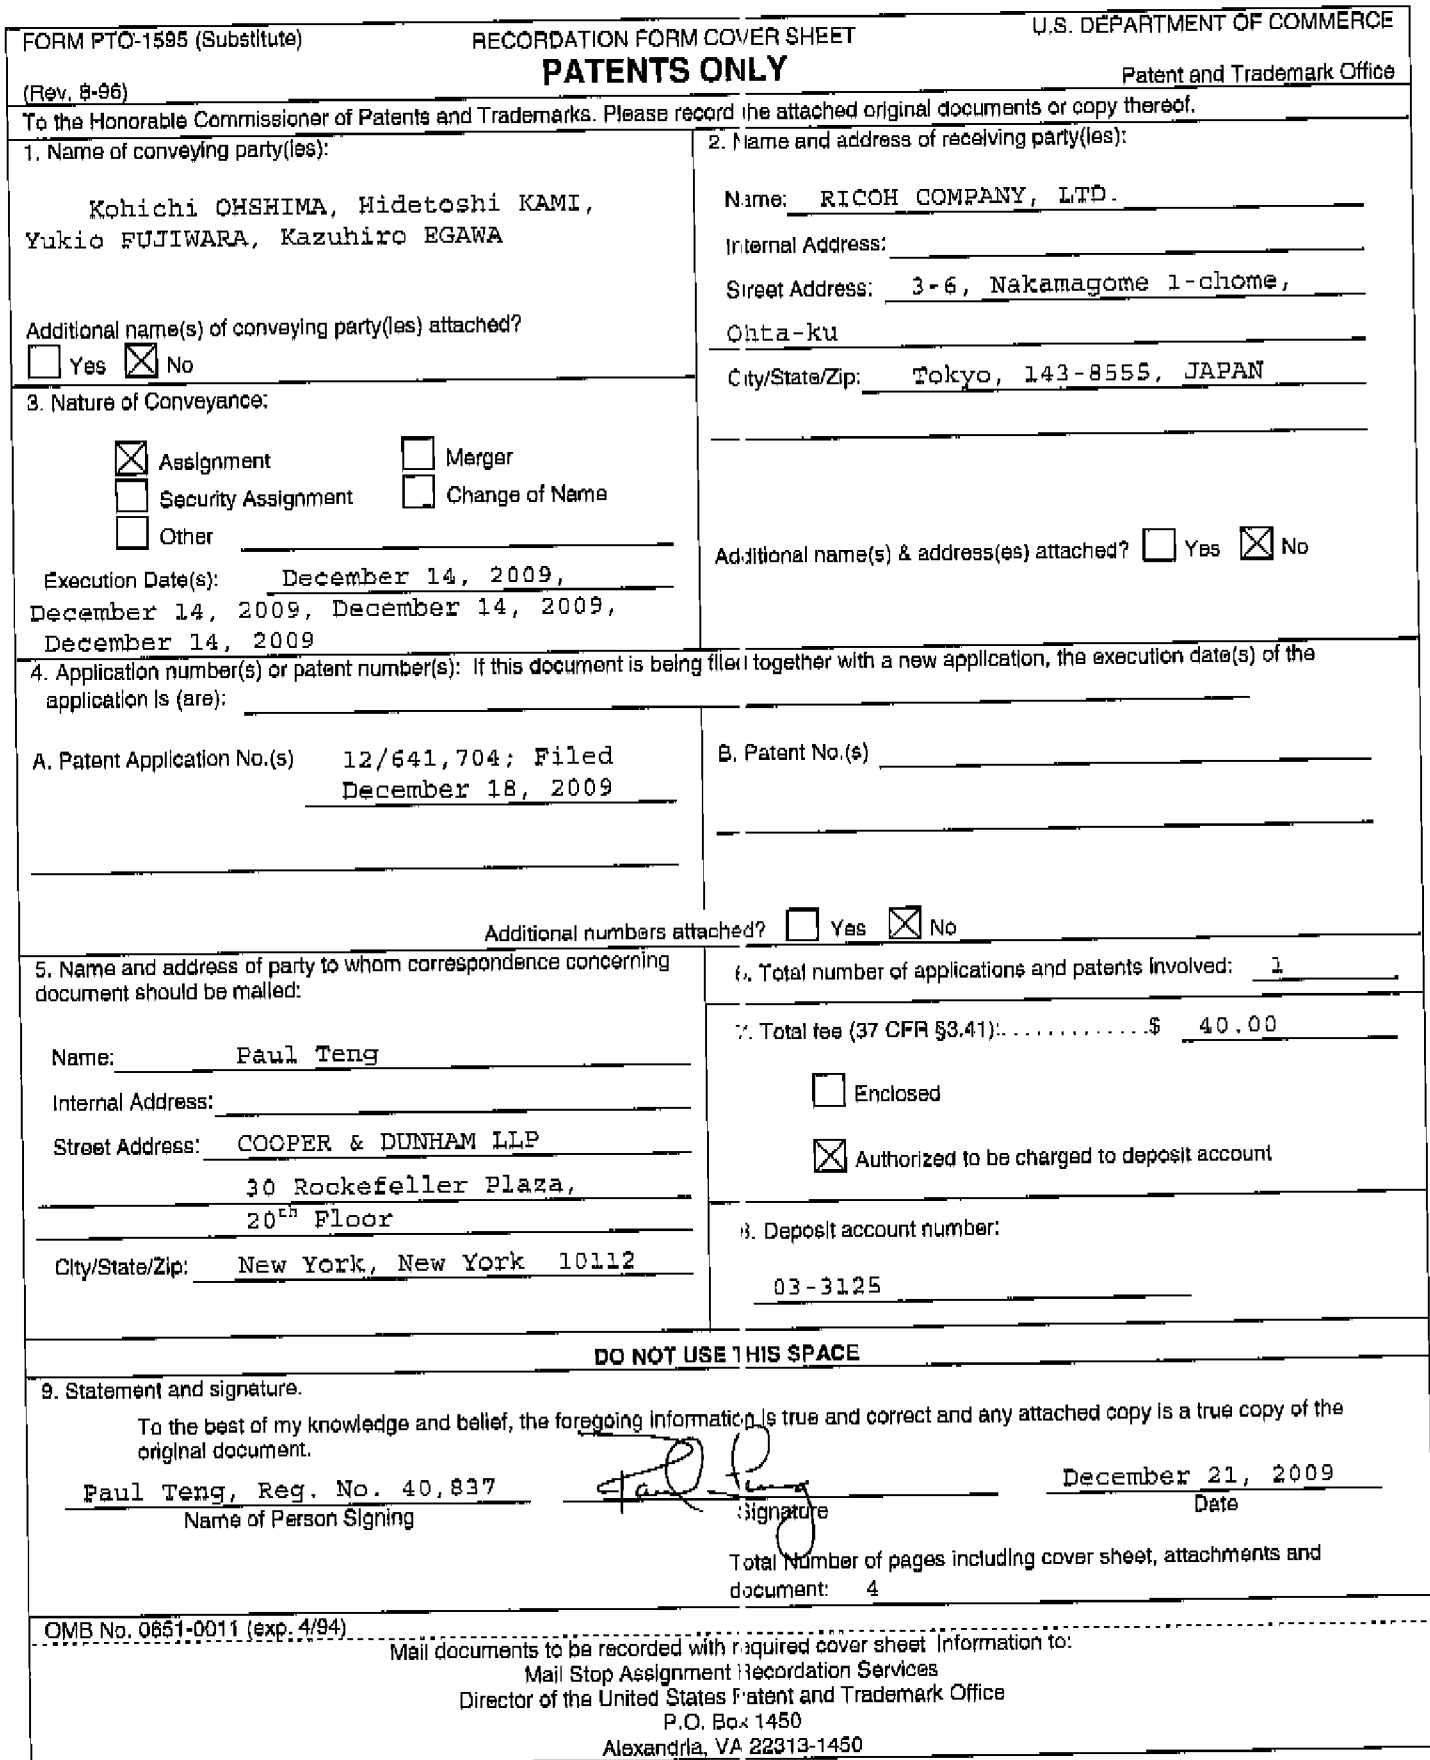 FORM PTO-1595 (Substitute)
RECORDATION FORM COVER SHEET
U.S. DEPARTMENT OF COMMERCE
PATENTS ONLY
(Rev. 8-96)
Patent and Trademark Office
To the Honorable Commissioner of Patents and Trademarks. Please record the attached original documents or copy thereof.
1. Name of conveying party(ies):
Kohichi OHSHIMA, Hidetoshi KAMI,
Yukio FUJIWARA, Kazuhiro EGAWA
Additional name(s) of conveying party(ies) attached?
Yes No
2. Name and address of receiving party(ies):
Name: RICOH COMPANY, LTD.
Internal Address:
Street Address: 3-6, Nakamagome 1-chome,
Ohta-ku
City/State/Zip: Tokyo, 143-8555, JAPAN
Additional name(s) & address(es) attached? Yes No
3. Nature of Conveyance:
Assignment Merger
Security Assignment Change of Name
Other
Execution Date(s): December 14, 2009,
December 14, 2009, December 14, 2009,
December 14, 2009
4. Application number(s) or patent number(s): If this document is being filed together with a new application, the execution date(s) of the
application is (are):
A. Patent Application No.(s) 12/641,704; Filed
December 18, 2009
B. Patent No.(s)
Additional numbers attached? Yes No
5. Name and address of party to whom correspondence concerning
document should be mailed:
Name: Paul Teng
Internal Address:
Street Address: COOPER & DUNHAM LLP
30 Rockefeller Plaza,
20th Floor
City/State/Zip: New York, New York 10112
6. Total number of applications and patents involved: 1
7. Total fee (37 CFR §3.41):.............$ 40.00
Enclosed
Authorized to be charged to deposit account
8. Deposit account number:
03-3125
DO NOT USE THIS SPACE
9. Statement and signature.
To the best of my knowledge and belief, the foregoing information is true and correct and any attached copy is a true copy of the
original document.
Paul Teng, Reg. No. 40,837
Name of Person Signing
Paul Teng
Signature
December 21, 2009
Date
Total Number of pages including cover sheet, attachments and
document: 4
OMB No. 0651-0011 (exp. 4/94)
Mail documents to be recorded with required cover sheet Information to:
Mail Stop Assignment Recordation Services
Director of the United States Patent and Trademark Office
P.O. Box 1450
Alexandria, VA 22313-1450